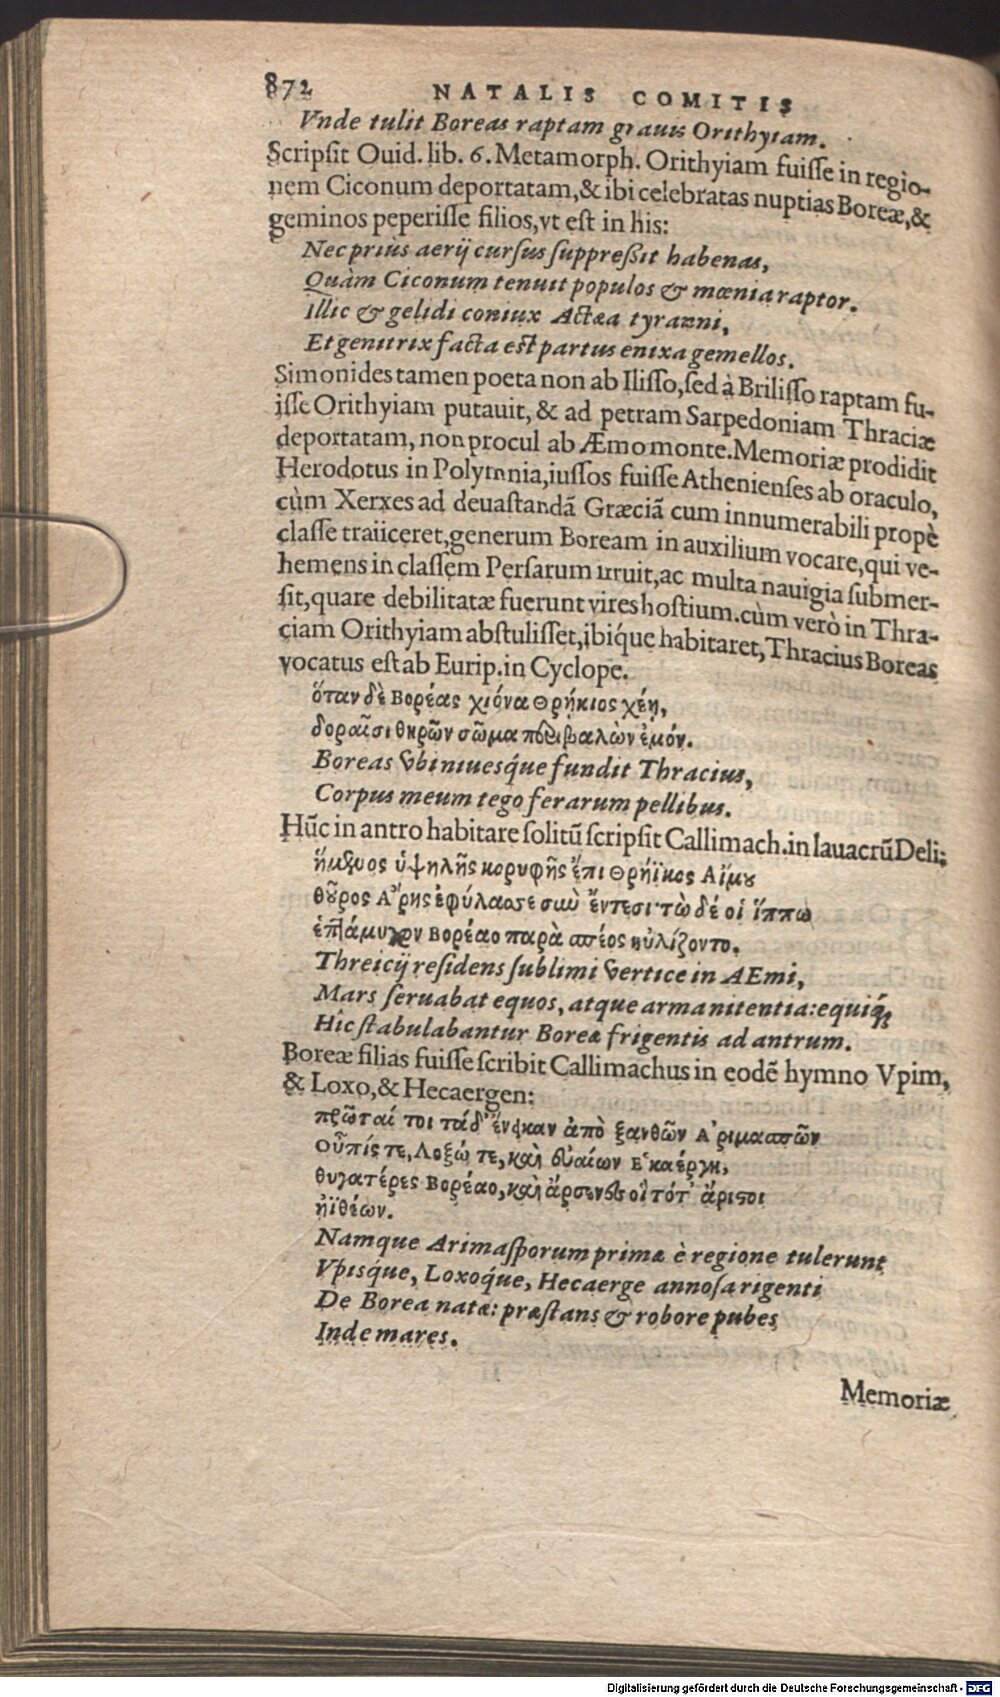 872 NATALIS COMITIS
Vnde tulit Boreas raptam grauis Orithyiam.
Scripſit Ouid. lib. 6. Metamorph. Orithyiam fuiſſe in regio-
nem Ciconum deportatam, & ibi celebratas nuptias Boreæ, &
geminos peperiſſe filios, vt eſt in his:
Nec priùs aerij curſus ſuppreßit habenas,
Quàm Ciconum tenuit populos & mœnia raptor.
Illic & gelidi coniux Actæa tyranni,
Et genitrix facta eſt partus enixa gemellos.
Simonides tamen poeta non ab Iliſſo, ſed à Briliſſo raptam fu-
iſſe Orithyiam putauit, & ad petram Sarpedoniam Thraciæ
deportatam, non procul ab Æmo monte. Memoriæ prodidit
Herodotus in Polymnia, iuſſos fuiſſe Athenienſes ab oraculo,
cùm Xerxes ad deuaſtandā Græciā cum innumerabili propè
claſſe traiiceret, generum Boream in auxilium vocare, qui ve-
hemens in claſſem Perſarum irruit, ac multa nauigia ſubmer-
ſit, quare debilitatæ fuerunt vires hoſtium. cùm verò in Thra-
ciam Orithyiam abſtuliſſet, ibíque habitaret, Thracius Boreas
vocatus eſt ab Eurip. in Cyclope.
ὅταν δὲ Βορέας χιόνα Θρῄκιος χέῃ,
δοραῖσι θηρῶν σῶμα περιβαλὼν ἐμόν.
Boreas vbi niuesq́ue fundit Thracius,
Corpus meum tego ferarum pellibus.
Hūc in antro habitare ſolitū ſcripſit Callimach. in lauacrū Deli:
ἥμενος ὑψηλῆς κορυφῆς ἔπι Θρήϊκος Αἵμου
θοῦρος Ἄρης ἐφύλασσε σὺν ἔντεσι· τὼ δέ οἱ ἵππω
ἑπτάμυχον Βορέαο παρὰ σπέος ηὐλίζοντο.
Threicij reſidens ſublimi vertice in AEmi,
Mars ſeruabat equos, atque arma nitentia: equiq́;
Hîc ſtabulabantur Boreæ frigentis ad antrum.
Boreæ filias fuiſſe ſcribit Callimachus in eodē hymno Vpim,
& Loxo, & Hecaergen:
πρῶταί τοι τάδ' ἔνεικαν ἀπὸ ξανθῶν Ἀριμασπῶν
Οὖπίς τε, Λοξώ τε, καὶ εὐαίων Ἑκαέργη,
θυγατέρες Βορέαο, καὶ ἄρσενες οἱ τότ' ἄριστοι
ἠϊθέων.
Namque Arimaſporum primæ è regione tulerunt
Vpisq́ue, Loxoq́ue, Hecaerge annoſa rigenti
De Borea natæ: præſtans & robore pubes
Inde mares.
Memoriæ
Digitalisierung gefördert durch die Deutsche Forschungsgemeinschaft - DFG